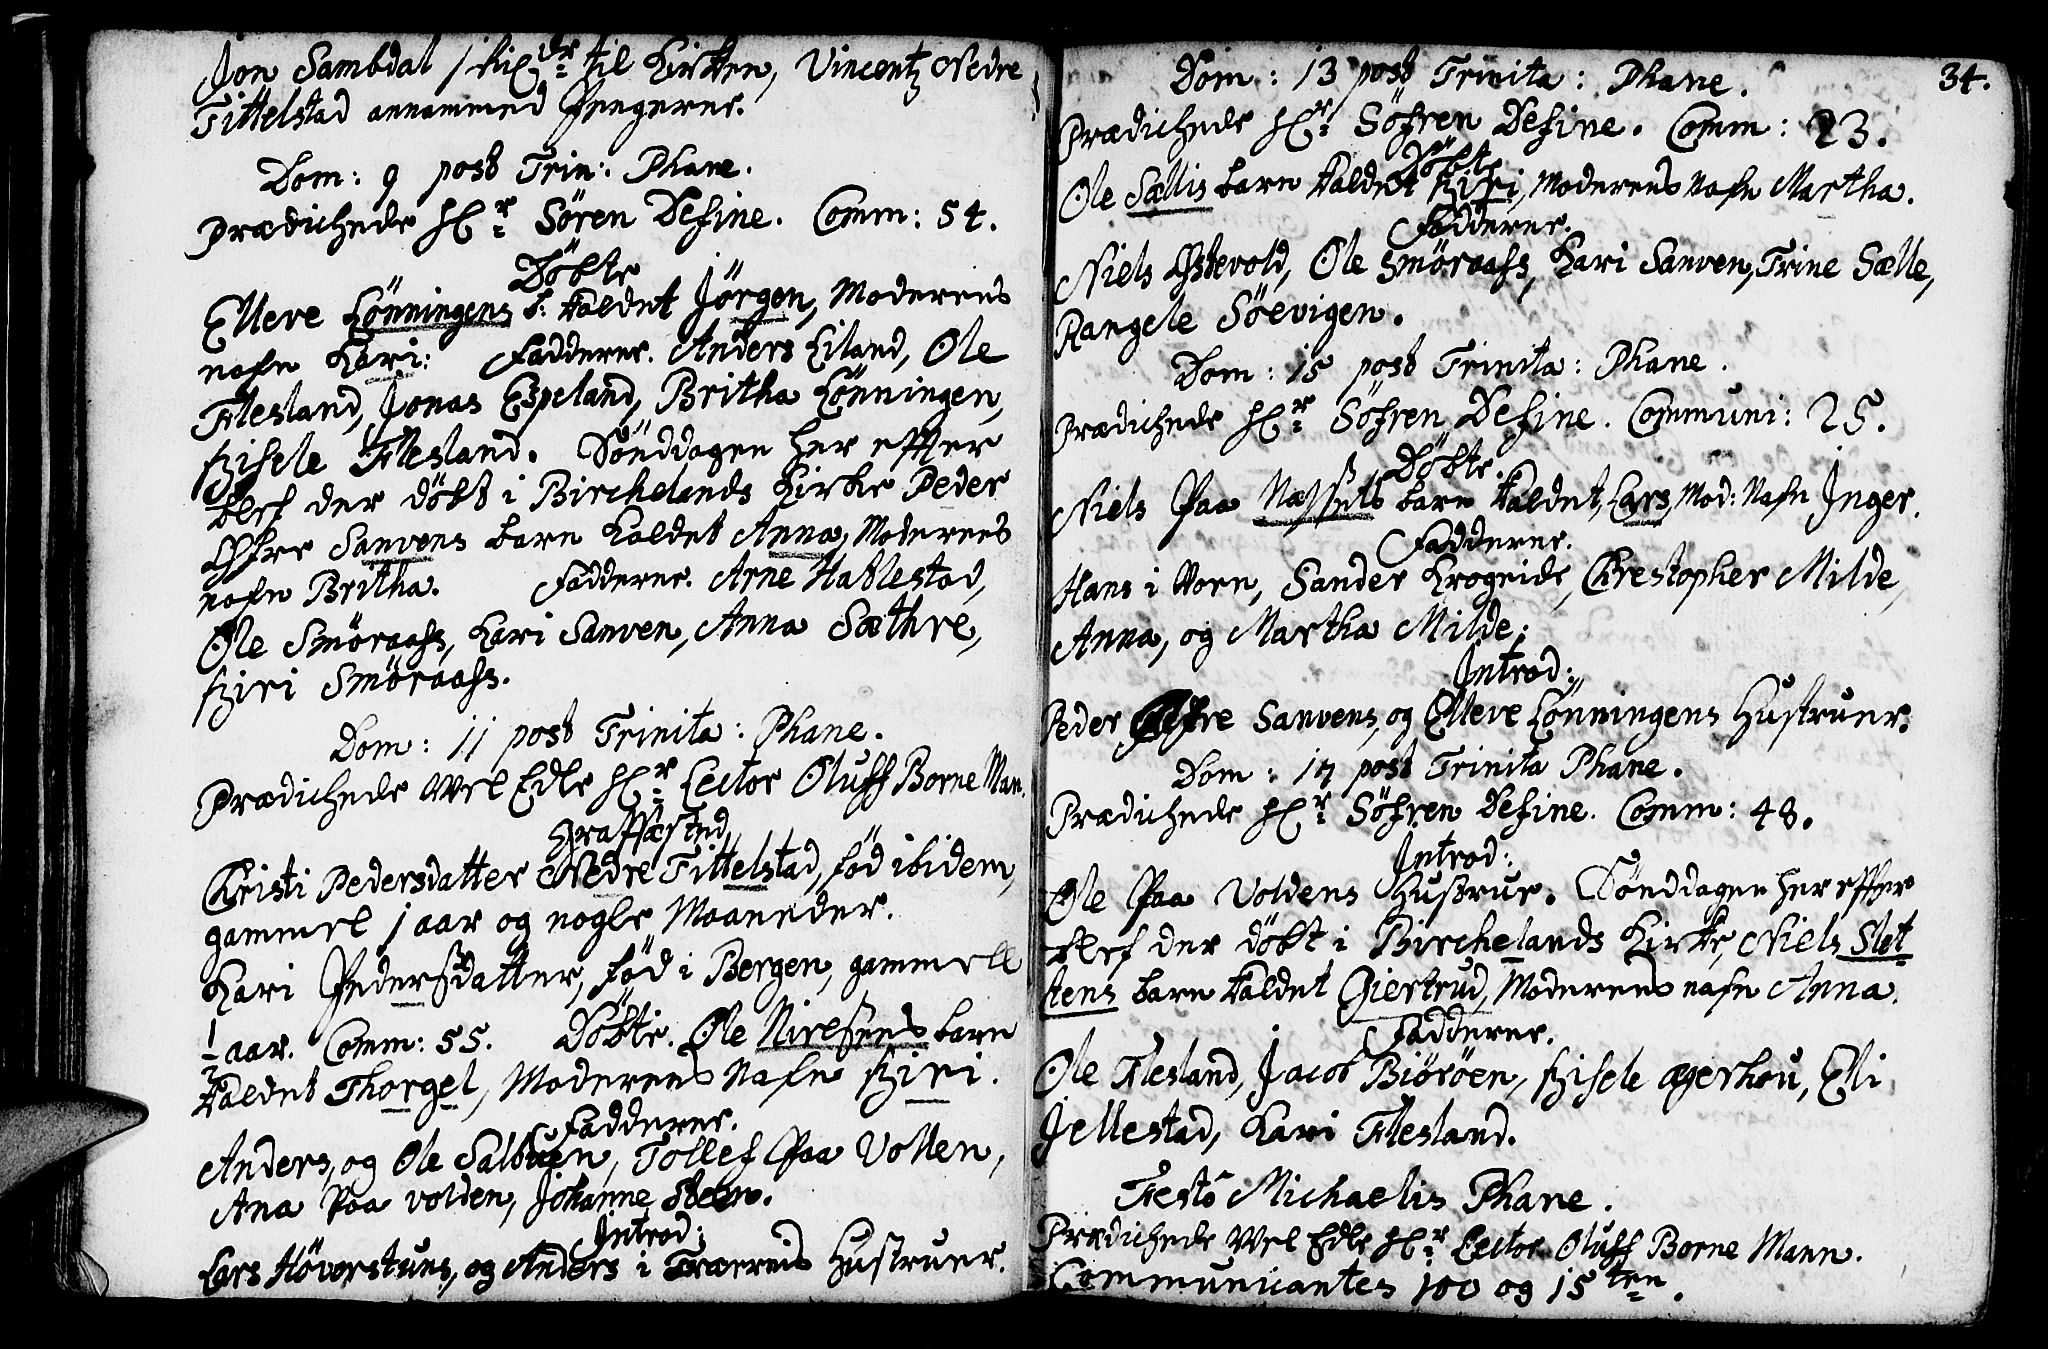 Jon Sambdal 1 Rix dr til Kirken, Vincentz Nedre
Tittelstad annammed Pengerne.
Dom: 9 post Trin: Phane.
Prædichede Hr Sören Define. Comm: 54.
Döbte
Elleve Lönningens b: Kaldet Jörgen, Moderens
nafn Kari: Fadderne. Anders Liland, Ole
Flesland, Jonas Espeland, Britha Lönningen,
Gisele Flesland. Sönddagen her effter
blef der döbt i Birchelands Kirke Peder
Öfre Sanvens barn Kaldet Anna, Moderens
nafn Britha. Fadderne. Arne Hatlestad,
Ole Smöraass, Kari Sanven, Anna Sæthre,
Giri Smöraass.
Dom: 11 post Trinita: Phane.
Prædichede Wel Edle Hr Lector Oluff Borne Man.
Graffæsted
Christi Pedersdatter Nedre Tittelstad, född ibidem,
gammel 1 aar og nogle Maaneder.
Kari Pedersdatter, föd i Bergen, gammell
1/2 aar. Comm: 55. Döbte. Ole Nielsens barn
Kaldet Thorgel, Moderens Nafn Giri.
Fadderne.
Anders, og Ole Salbuen, Tollef Paa Vollen,
Ana Paa volden, Johanne Steen.
Introd:
Lars Höverstuns, og Anders i Træernis Hustruer.
34.
Dom: 13 post Trinita: Phane.
Prædichede Hr Söfren Define. Comm: 23.
Döbte
Ole Sællis barn Kaldet Giri, Moderens Nafn Martha.
Fadderne.
Niels Östevold, Ole Smöraass, Kari Sanven, Trine Sælle,
Rangele Söevigen.
Dom: 15 post Trinita: Phane.
Prædichede Hr Söfren Define. Communi: 25.
Döbte.
Niels Paa Næssets barn Kaldet, Lars, Mod: Nafn Inger.
Fadderne.
Hans i Vorn, Sander Krogeide, Christopher Milde,
Anna, og Martha Milde.
Introd:
Peder Öfre Sanvens, og Elleve Lönningens Hustruer.
Dom: 17 post Trinita Phane.
Prædichede Hr Söfren Define. Comm: 48.
Introd:
Ole Paa Voldens Hustrue. Sönddagen her effter
blef der döbt i Birchelands Kirke, Niels Slet
tens barn Kaldet Giertrud, Moderens nafn Anna.
Fadderne.
Ole Flesland, Jacob Biöröen, Gisele ægerhou, Elli
Jellestad, Kari Flesland.
Festo Michaelis Phane.
Prædichede Wel Edle Hr Lector Oluff Borne Mann.
Communicantes 100 og 15 ten.